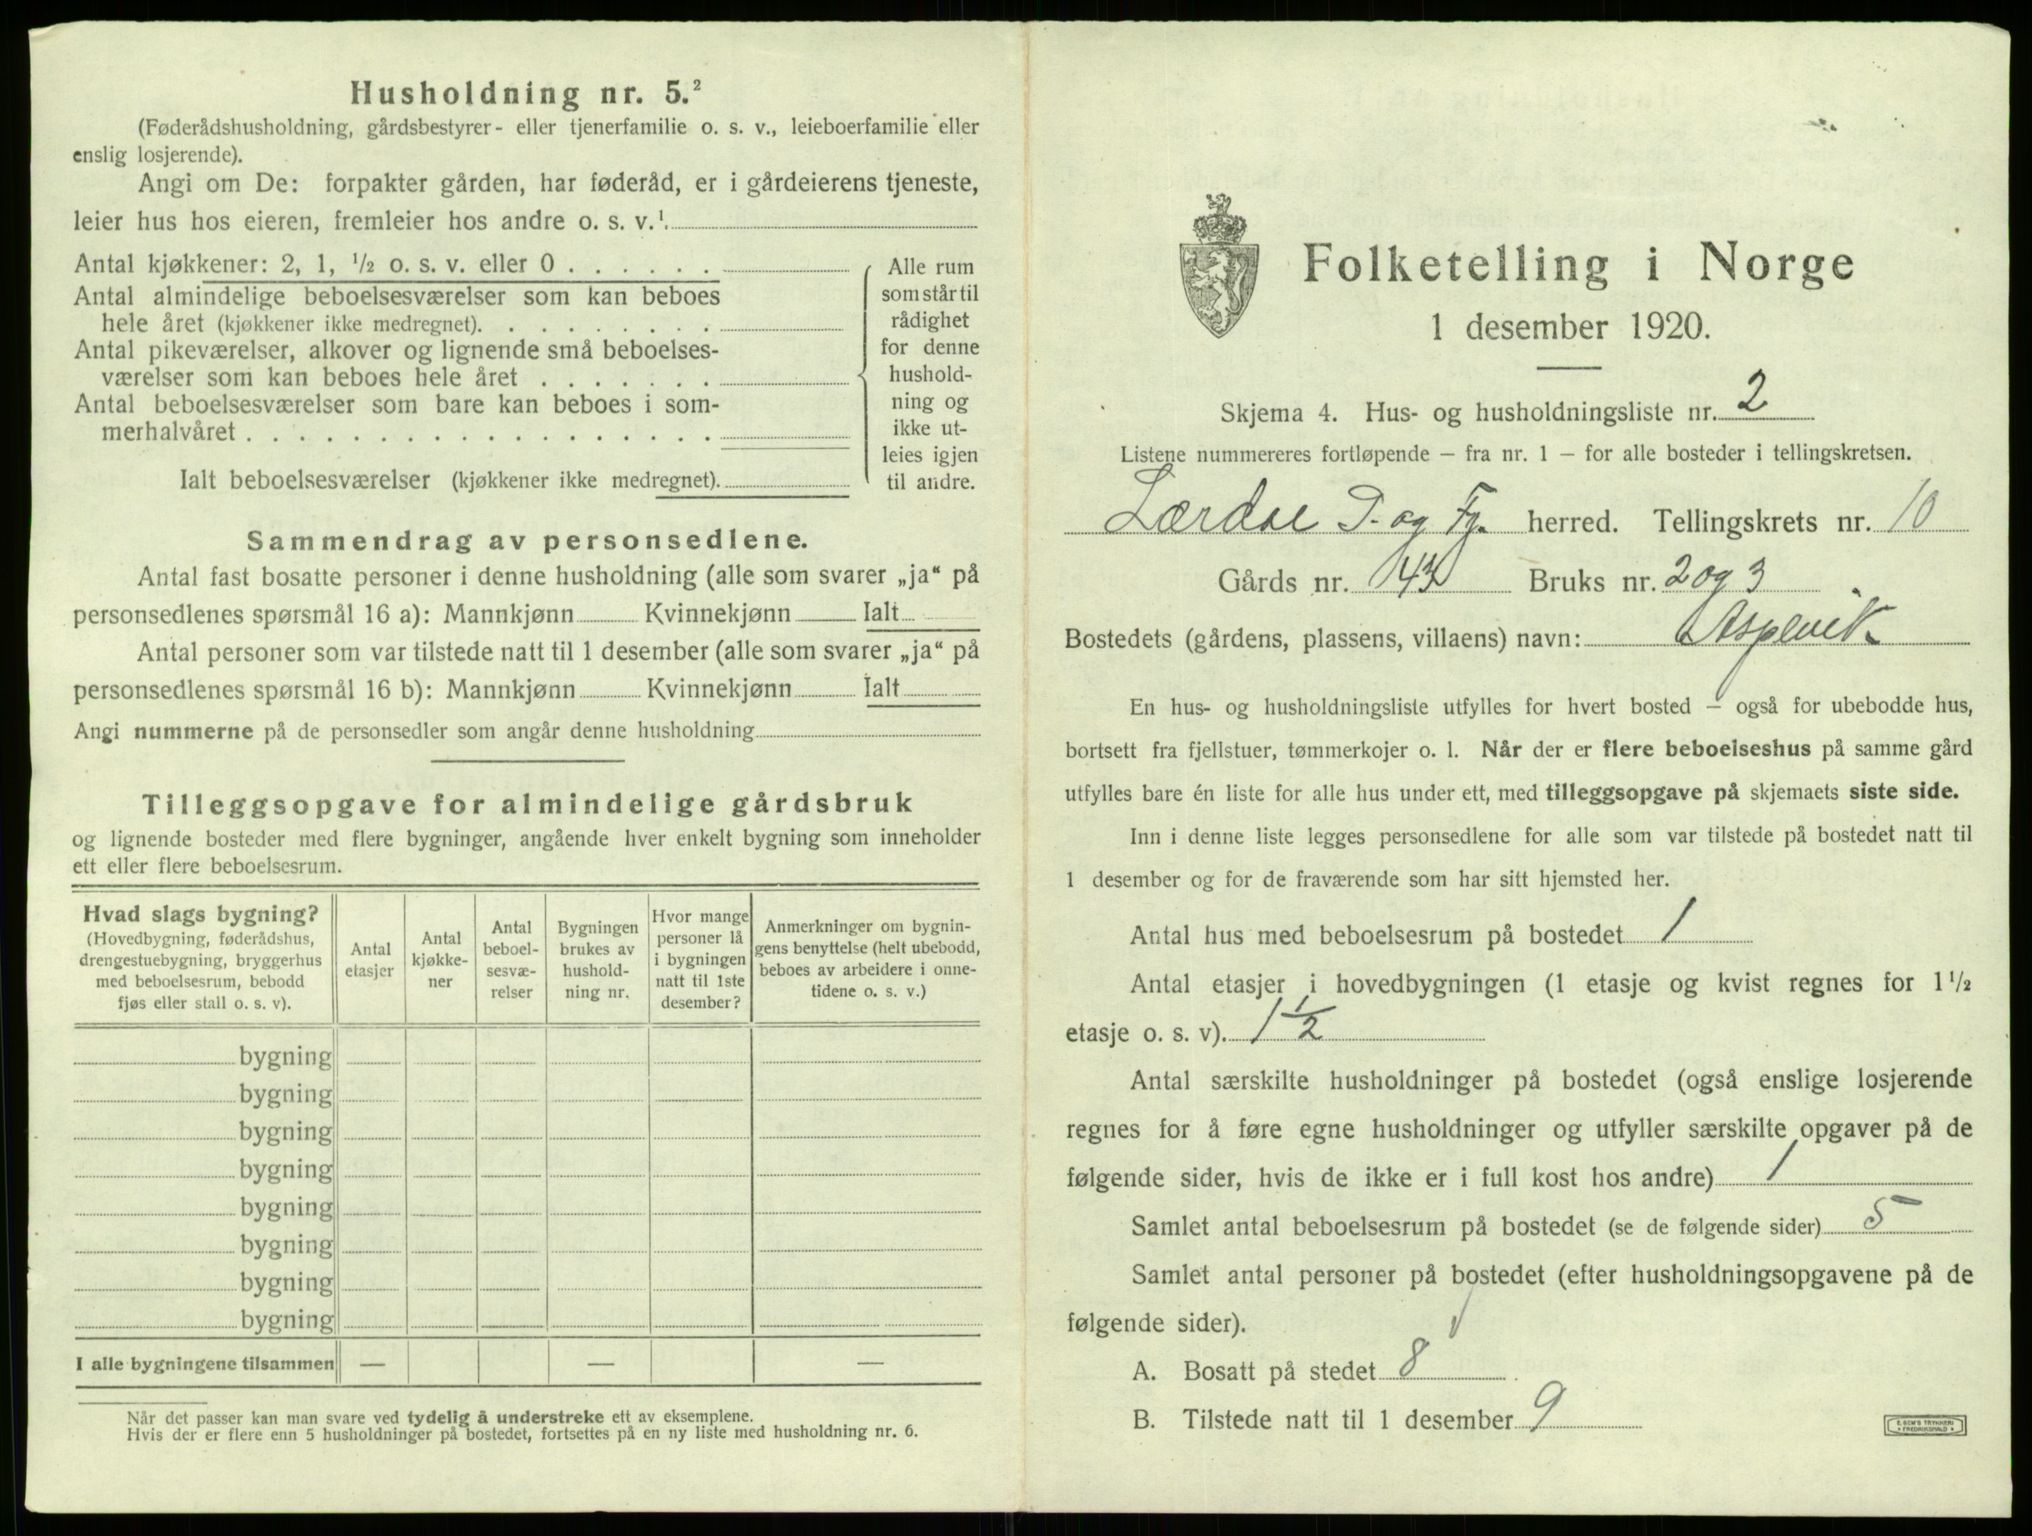 Husholdning nr. 5.²
(Føderådshusholdning, gårdsbestyrer- eller tjenerfamilie o. s. v., leieboerfamilie eller
enslig losjerende).
Angi om De: forpakter gården, har føderåd, er i gårdeierens tjeneste,
leier hus hos eieren, fremleier hos andre o. s. v.¹.
Antal kjøkkener: 2, 1, ½ o. s. v. eller 0 . . . . . .
Antal almindelige beboelsesværelser som kan beboes
hele året (kjøkkener ikke medregnet). . . . . . . . .
Antal pikeværelser, alkover og lignende små beboelses-
værelser som kan beboes hele året . . . . . . .
Antal beboelsesværelser som bare kan beboes i som-
merhalvåret . . . . . . . . . . . . . . . . . .
Ialt beboelsesværelser (kjøkkener ikke medregnet).
Alle rum
som står til
rådighet
for denne
hushold-
ning og
ikke ut-
leies igjen
til andre.
Sammendrag av personsedlene.
Antal fast bosatte personer i denne husholdning (alle som svarer „ja“ på
personsedlenes spørsmål 16 a): Mannkjønn Kvinnekjønn Ialt
Antal personer som var tilstede natt til 1 desember (alle som svarer „ja“ på
personsedlenes spørsmål 16 b): Mannkjønn Kvinnekjønn Ialt
Angi nummerne på de personsedler som angår denne husholdning
Tilleggsopgave for almindelige gårdsbruk
og lignende bosteder med flere bygninger, angående hver enkelt bygning som inneholder
ett eller flere beboelsesrum.
Hvad slags bygning?
(Hovedbygning, føderådshus,
drengestuebygning, bryggerhus
med beboelsesrum, bebodd
fjøs eller stall o. s. v).
Antal
etasjer
Antal
kjøkke-
ner
Antal
beboel-
sesvæ-
relser
Bygningen
brukes av
hushold-
ning nr.
Hvor mange
personer lå
i bygningen
natt til 1ste
desember?
Anmerkninger om bygnin-
gens benyttelse (helt ubebodd,
beboes av arbeidere i onne-
tidene o. s. v.)
bygning
bygning
bygning
bygning
bygning
bygning
bygning
bygning
I alle bygningene tilsammen — — —
Når det passer kan man svare ved tydelig å understreke ett av eksemplene.
Hvis der er flere enn 5 husholdninger på bostedet, fortsettes på en ny liste med husholdning nr. 6.
Folketelling i Norge
1 desember 1920.
Skjema 4. Hus- og husholdningsliste nr. 2
Listene nummereres fortløpende — fra nr. 1 — for alle bosteder i tellingskretsen.
Lærdal P. og Fg. herred. Tellingskrets nr. 10
Gårds nr. 143 Bruks nr. 2 og 3
Bostedets (gårdens, plassens, villaens) navn: Aspevik
En hus- og husholdningsliste utfylles for hvert bosted — også for ubebodde hus,
bortsett fra fjellstuer, tømmerkojer o. l. Når der er flere beboelseshus på samme gård
utfylles bare én liste for alle hus under ett, med tilleggsopgave på skjemaets siste side.
Inn i denne liste legges personsedlene for alle som var tilstede på bostedet natt til
1 desember og for de fraværende som har sitt hjemsted her.
Antal hus med beboelsesrum på bostedet 1
Antal etasjer i hovedbygningen (1 etasje og kvist regnes for 1½
etasje o. s. v). 1½
Antal særskilte husholdninger på bostedet (også enslige losjerende
regnes for å føre egne husholdninger og utfyller særskilte opgaver på de
følgende sider, hvis de ikke er i full kost hos andre) 1
Samlet antal beboelsesrum på bostedet (se de følgende sider) 5
Samlet antal personer på bostedet (efter husholdningsopgavene på de
følgende sider).
A. Bosatt på stedet 8
B. Tilstede natt til 1 desember 9
E. SEM'S TRYKKERI
• FREDRIKSHALD •